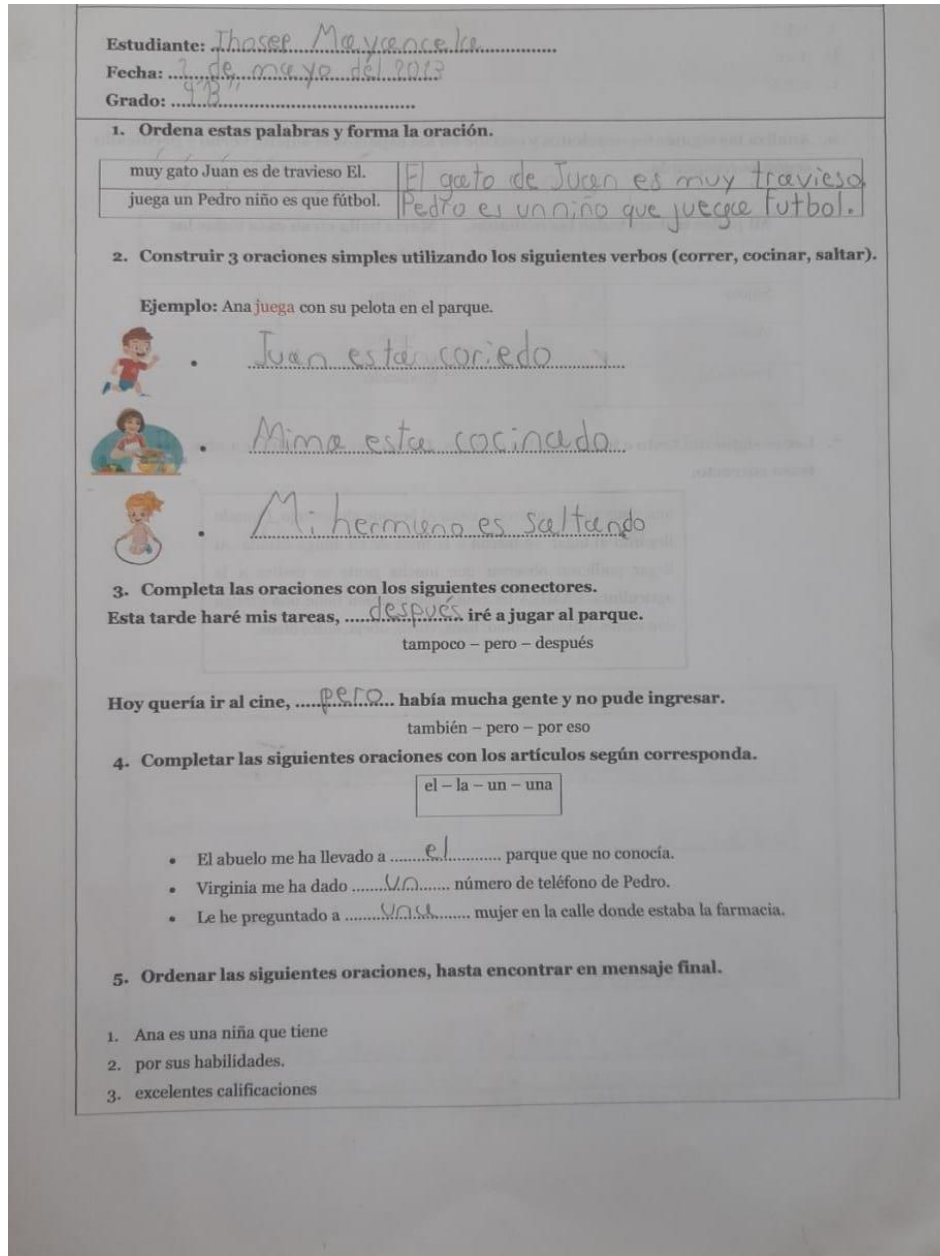 Estudiante: Jhosep Mayancela
Fecha: 2 de mayo del 2023
Grado: 4"B"
1. Ordena estas palabras y forma la oración.
muy gato Juan es de travieso El. El gato de Juan es muy travieso
juega un Pedro niño es que fútbol. Pedro es un niño que juegae futbol.
2. Construir 3 oraciones simples utilizando los siguientes verbos (correr, cocinar, saltar).
Ejemplo: Ana juega con su pelota en el parque.
• Juan esta coriedo
• Mima esta cocinado
• Mi hermano es saltando
3. Completa las oraciones con los siguientes conectores.
Esta tarde haré mis tareas, después iré a jugar al parque.
tampoco – pero – después
Hoy quería ir al cine, pero había mucha gente y no pude ingresar.
también – pero – por eso
4. Completar las siguientes oraciones con los artículos según corresponda.
el – la – un – una
• El abuelo me ha llevado a el parque que no conocía.
• Virginia me ha dado un número de teléfono de Pedro.
• Le he preguntado a una mujer en la calle donde estaba la farmacia.
5. Ordenar las siguientes oraciones, hasta encontrar en mensaje final.
1. Ana es una niña que tiene
2. por sus habilidades.
3. excelentes calificaciones